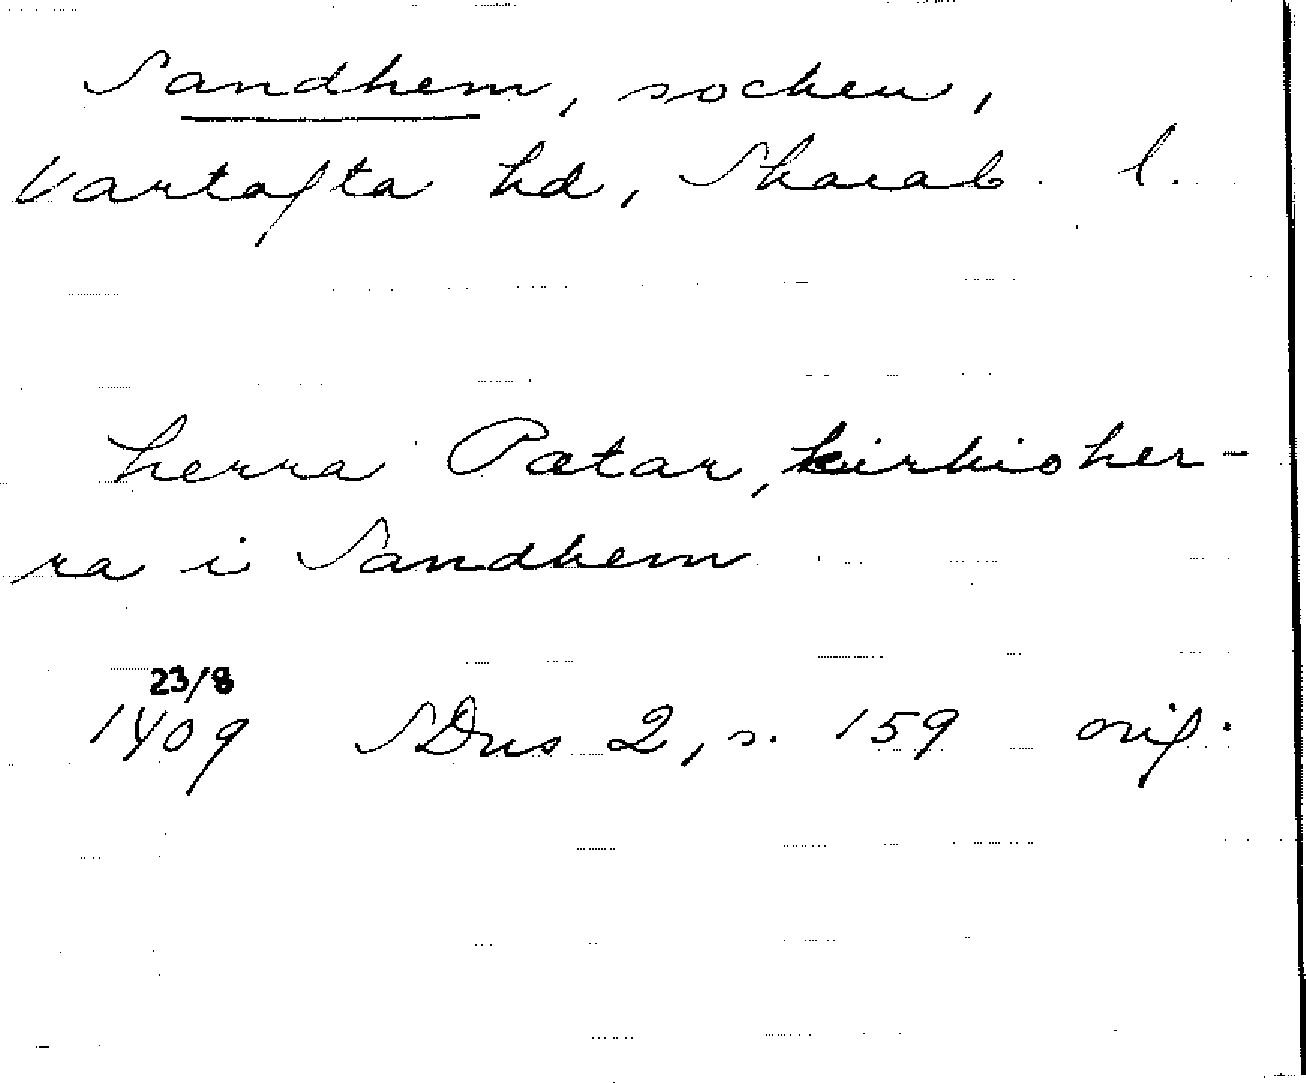 Sandhem, socken,
Vartofta hd, Skarab. l.
herra Pætar, kirkioher-
ra i Sandhem
23/8
1409 SDns 2, s. 159 orig.